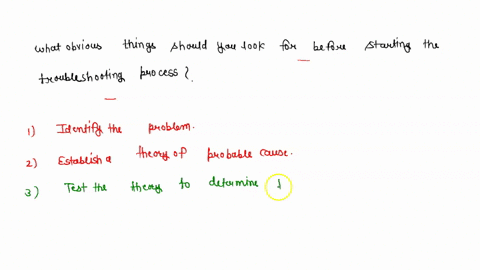 what obvious things should you look for before starting the
troubleshooting process?
1) Identify the problem.
2) Establish a theory of probable cause.
3) Test the theory to determine